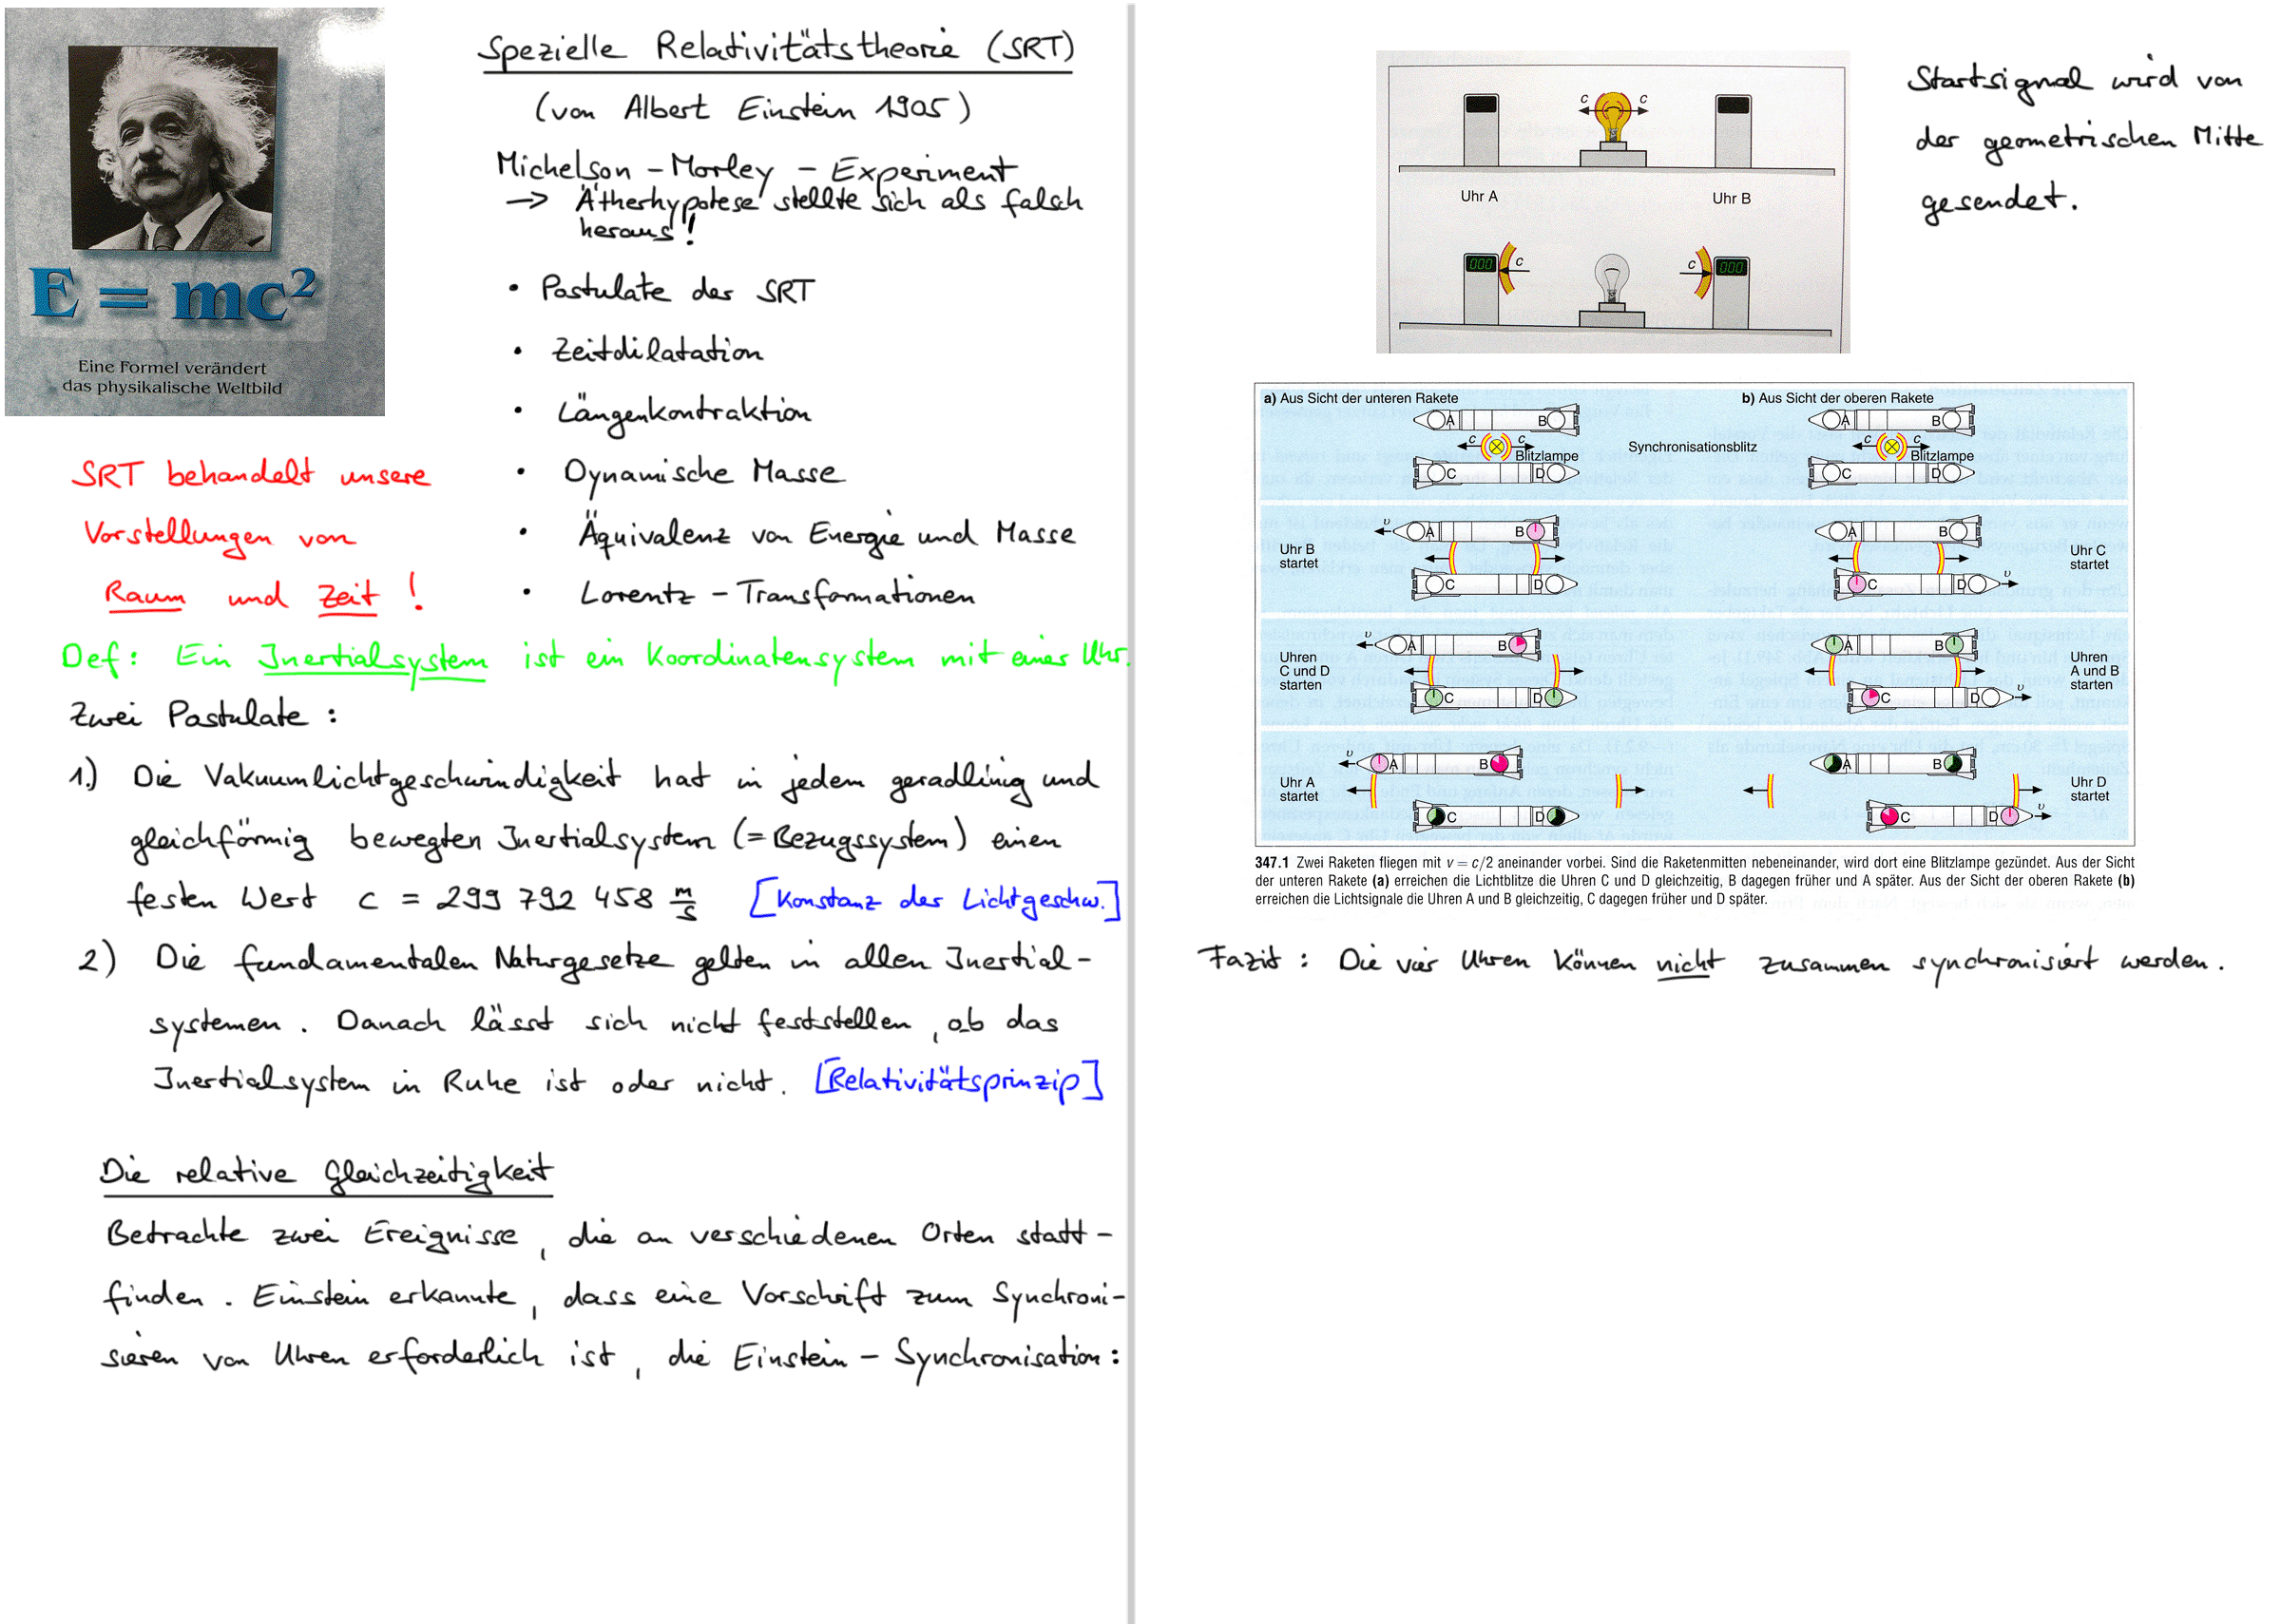 E = mc²
Eine Formel verändert
das physikalische Weltbild
Spezielle Relativitätstheorie (SRT)
(von Albert Einstein 1905)
Michelson - Morley - Experiment
→ Ätherhypotese stellte sich als falsch
heraus!
• Postulate der SRT
• Zeitdilatation
• Längenkontraktion
• Dynamische Masse
• Äquivalenz von Energie und Masse
• Lorentz - Transformationen
SRT behandelt unsere
Vorstellungen von
Raum und Zeit !
Def: Ein Inertialsystem ist ein Koordinatensystem mit einer Uhr.
Zwei Postulate :
1.) Die Vakuumlichtgeschwindigkeit hat in jedem geradlinig und
gleichförmig bewegten Inertialsystem (= Bezugssystem) einen
festen Wert c = 299 792 458 m/s [Konstanz der Lichtgeschw.]
2) Die fundamentalen Naturgesetze gelten in allen Inertial-
systemen. Danach lässt sich nicht feststellen, ob das
Inertialsystem in Ruhe ist oder nicht. [Relativitätsprinzip]
Die relative Gleichzeitigkeit
Betrachte zwei Ereignisse, die an verschiedenen Orten statt-
finden. Einstein erkannte, dass eine Vorschrift zum Synchroni-
sieren von Uhren erforderlich ist, die Einstein - Synchronisation:
c c
Uhr A Uhr B
000 c c 000
Startsignal wird von
der geometrischen Mitte
gesendet.
a) Aus Sicht der unteren Rakete b) Aus Sicht der oberen Rakete
A B A B
c c Synchronisationsblitz c c
Blitzlampe Blitzlampe
C D C D
υ A B A B
Uhr B
startet
Uhr C
startet
C D C D υ
υ A B A B
Uhren
C und D
starten
Uhren
A und B
starten
C D C D υ
υ A B A B
Uhr A
startet
Uhr D
startet
C D C D υ
347.1 Zwei Raketen fliegen mit v = c/2 aneinander vorbei. Sind die Raketenmitten nebeneinander, wird dort eine Blitzlampe gezündet. Aus der Sicht
der unteren Rakete (a) erreichen die Lichtblitze die Uhren C und D gleichzeitig, B dagegen früher und A später. Aus der Sicht der oberen Rakete (b)
erreichen die Lichtsignale die Uhren A und B gleichzeitig, C dagegen früher und D später.
Fazit : Die vier Uhren können nicht zusammen synchronisiert werden.